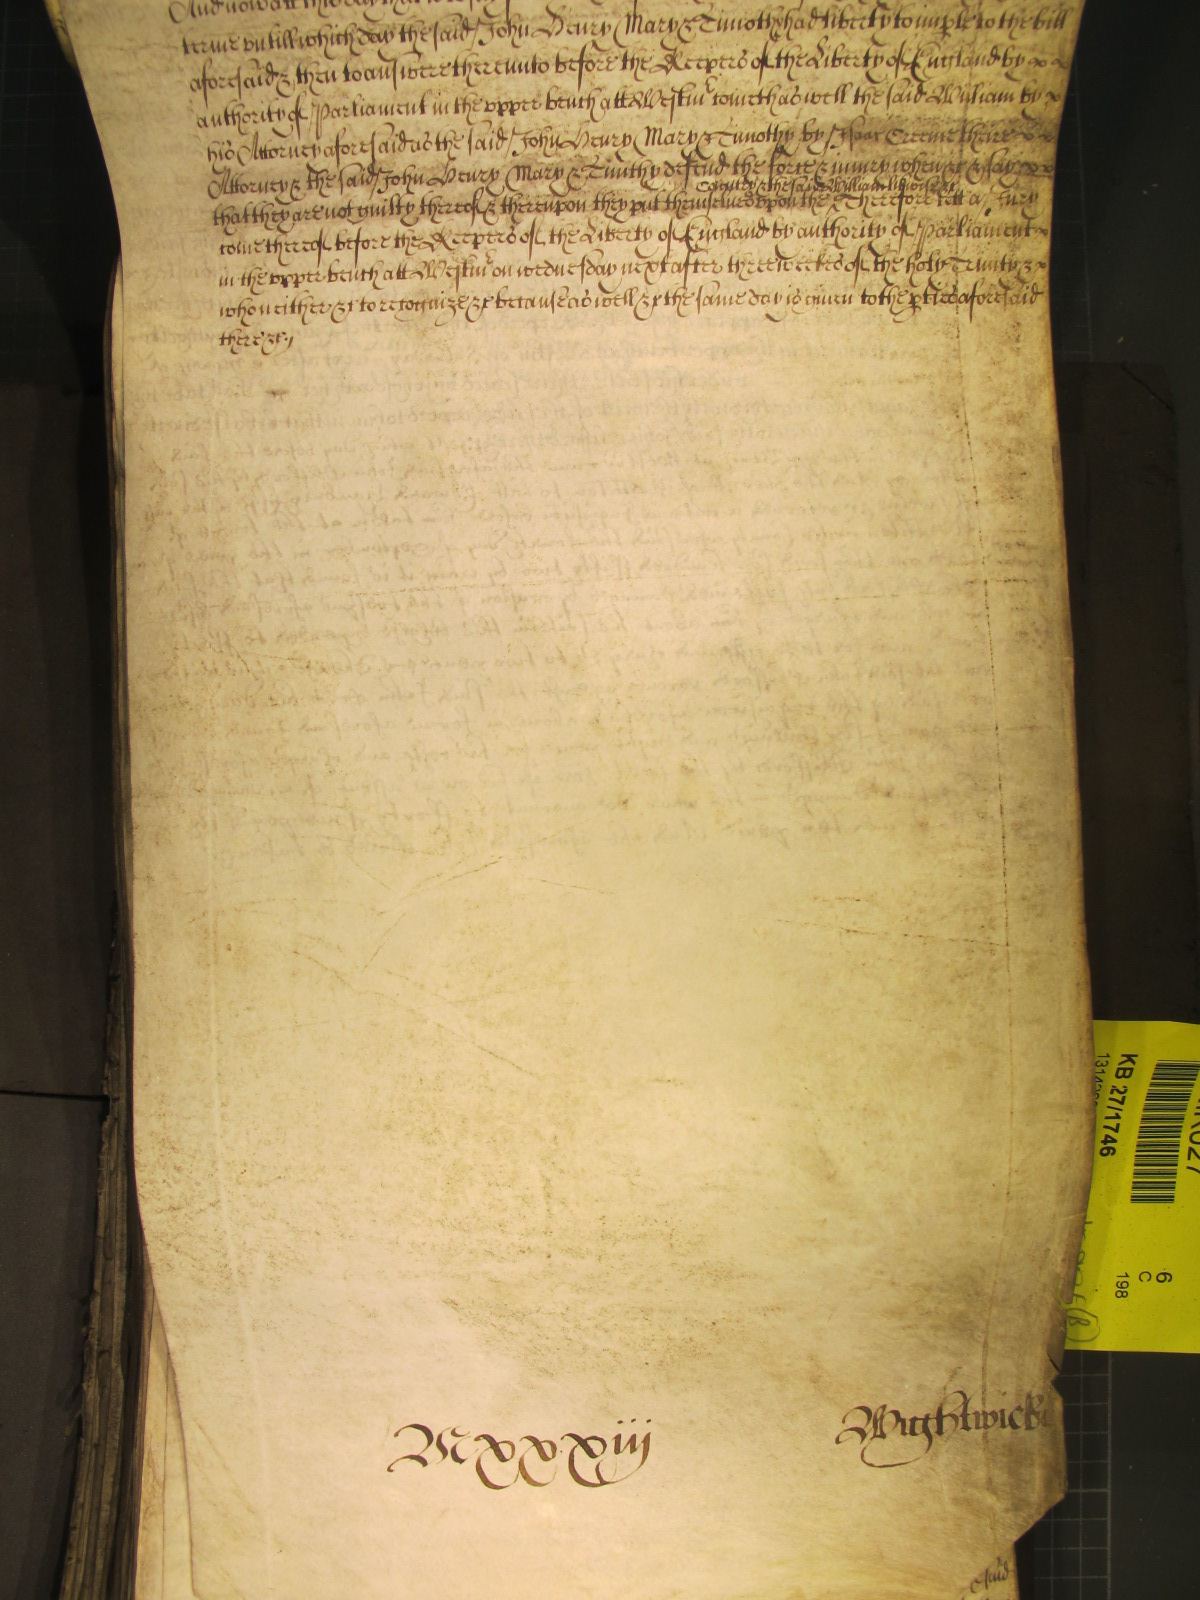 And now att this day that is to say
terme untill which day the said John Henry Mary & Timothy had liberty to imple to the bill
aforesaid & then to answere thereunto before the Keepers of the Liberty of England by
authority of Parliament in the upper bench att Westm̃ cometh aswell the said William by
his Attorney aforesaid as the said John Henry Mary & Timothy by Isaac Greene there
Attorney & the said John Henry Mary & Timothy defend the force & injury when &c & say
Countrey & the said William likewise &c
that they are not guilty thereof & thereupon they put themselves upon the Therefore lett a Jury
come thereof before the Keepers of the Liberty of England by authority of Parliament
in the upper bench att Westm̃ on wednesday next after three weekes of the holy Trinity &
who neither &c to recognize &c because aswell &c the same day is given to the pties aforesaid
there &c
Mxxxiij
Wightwick
KB 27/1746
6
C
198
said